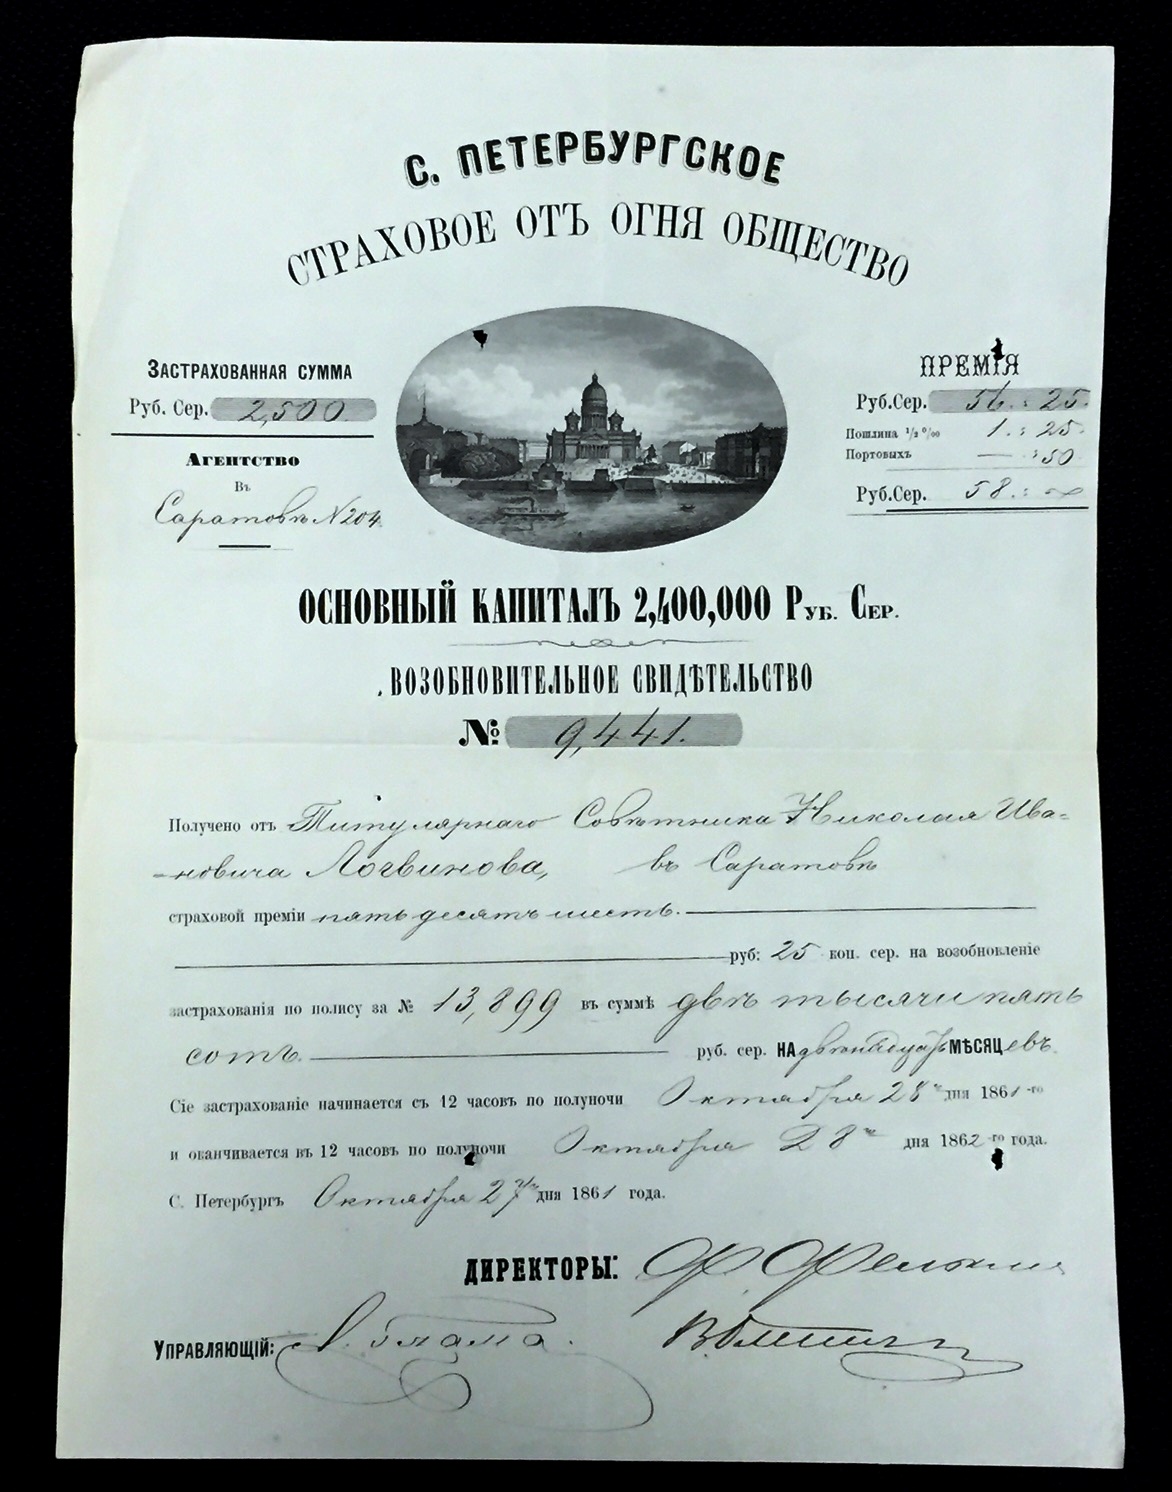 С. ПЕТЕРБУРГСКОЕ
СТРАХОВОЕ ОТЪ ОГНЯ ОБЩЕСТВО
ЗАСТРАХОВАННАЯ СУММА
Руб. Сер. 2,500.
АГЕНТСТВО
Въ
Саратовѣ N 204.
ПРЕМІЯ
Руб.Сер. 56.: 25.
Пошлина ½ % 1.: 25.
Портовыхъ — :50.
Руб.Сер. 58.:
ОСНОВНЫЙ КАПИТАЛЪ 2,400,000 РУБ. СЕР.
ВОЗОБНОВИТЕЛЬНОЕ СВИДѢТЕЛЬСТВО
№ 9,441.
Получено отъ Титулярнаго Совѣтника Николая Ива=
=новича Логвинова, въ Саратовѣ
страховой преміи пятьдесятъ шесть.
руб: 25 коп. сер. на возобновленіе
застрахованія по полису за № 13,899 въ суммѣ двѣ тысячи пять
сотъ. руб. сер. НА двѣнадцать МѢСЯЦевъ.
Сіе застрахованіе начинается съ 12 часовъ по полуночи Октября 28 дня 1861-го
и оканчивается въ 12 часовъ по полуночи Октября 28 дня 1862-го года.
С. Петербургъ Октября 27 дня 1861 года.
ДИРЕКТОРЫ:
УПРАВЛЯЮЩІЙ: